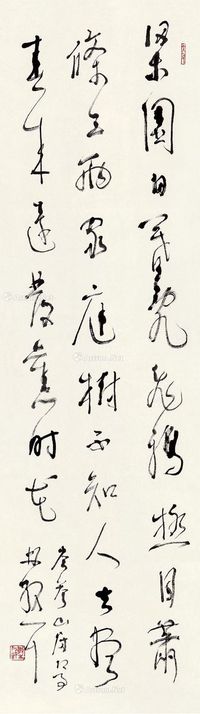 梁園日暮亂飛鴉極目蕭
條三兩家庭樹不知人去盡
春來還發舊時花
岑參山房春事
林散耳